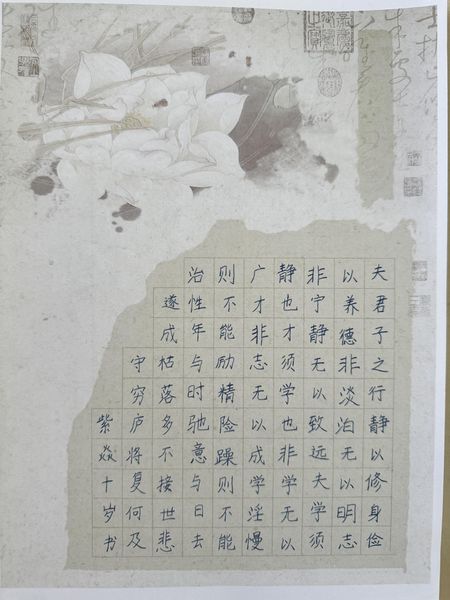 夫君子之行静以修身俭
以养德非淡泊无以明志
非宁静无以致远夫学须
静也才须学也非学无以
广才非志无以成学淫慢
则不能励精险躁则不能
治性年与时驰意与日去
遂成枯落多不接世悲
守穷庐将复何及
紫焱十岁书